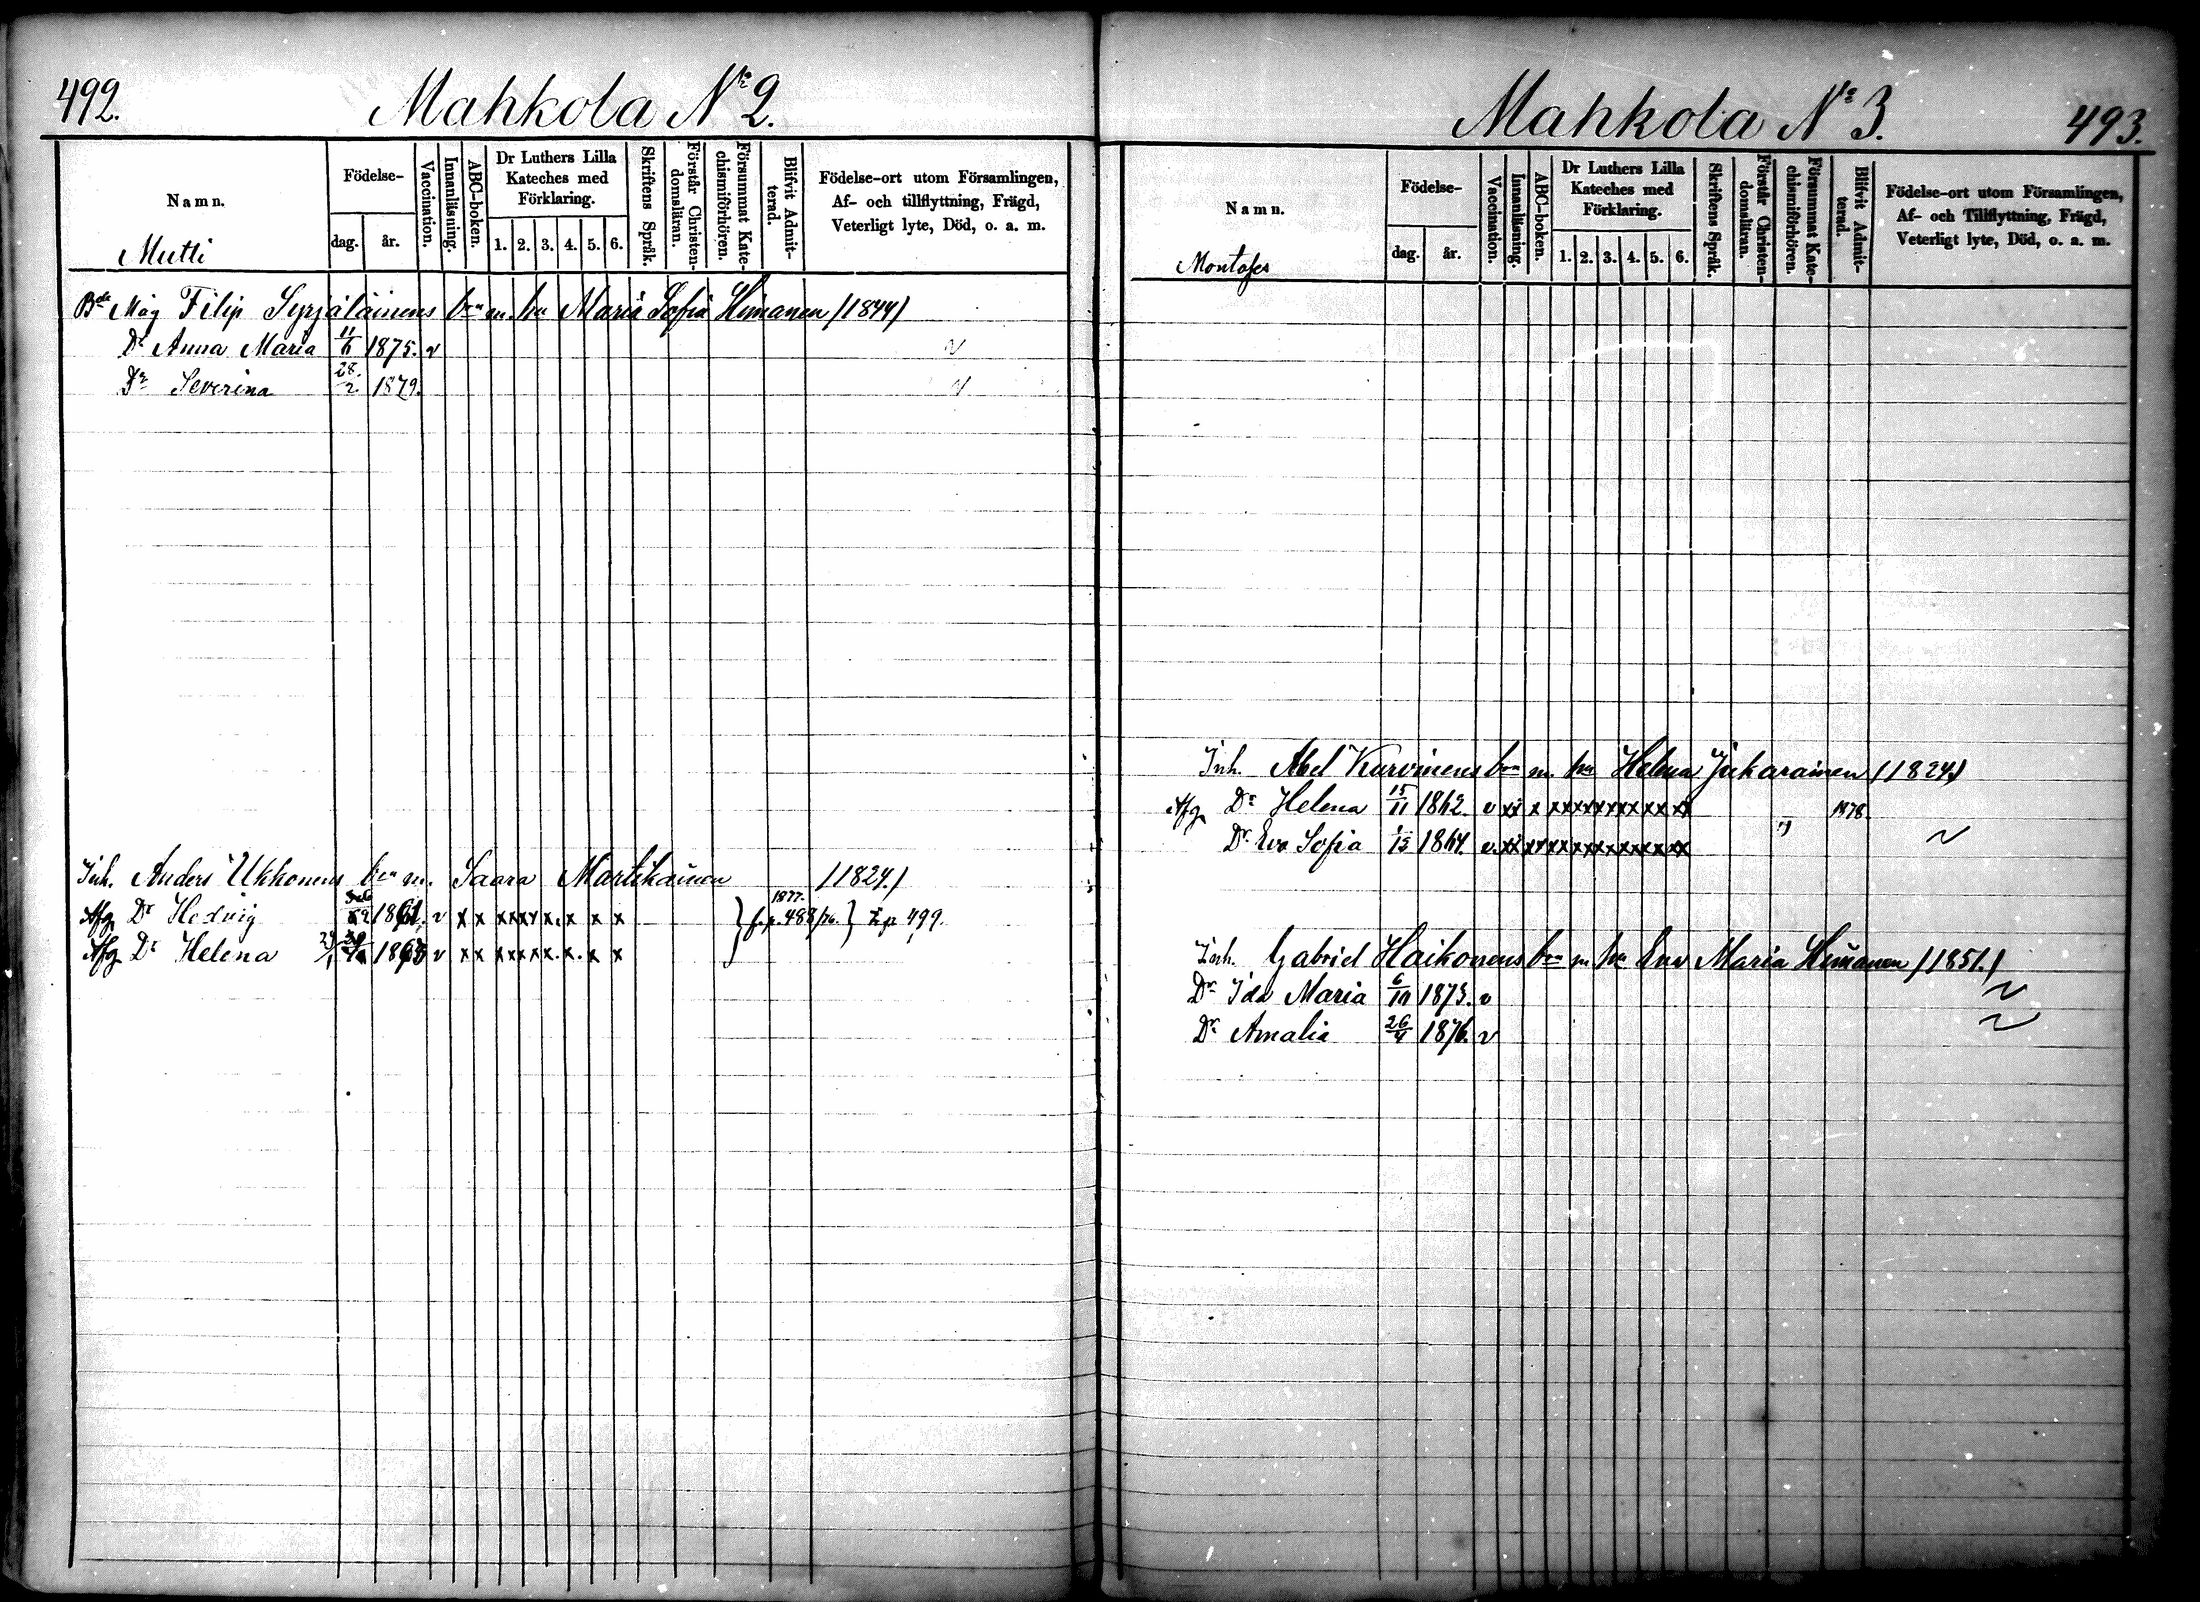 492.
Mahkola No 2.
Namn.
Födelse-
dag.
år.
Vaccination.
Innanläsning.
ABC-boken.
Dr Luthers Lilla
Kateches med
Förklaring.
1. 2. 3. 4. 5. 6.
Skriftens Språk.
Förstår Christen-
domsläran.
Försummat Kate-
chismiförhören.
Blifvit Admit-
terad.
Födelse-ort utom Församlingen,
Af- och tillflyttning, Frägd,
Veterligt lyte, Död, o. a. m.
Mutti
Måg Filip Syrjäläinens m. hu Maria Sofia Himanen (1844)
Dr Anna Maria 11/6 1875. v
Dr Severina 28/2 1879.
Inh. Anders Ukkonens m. Saara Martikainen (1824.)
Afg Dr Hedvig v x x x x x x x x x 1877.
Afg Dr Helena v x x x x x x x x x } f. p. 488/76. } t. p. 499.
Mahkola No 3.
493.
Namn.
Födelse-
dag.
år.
Vaccination.
Innanläsning.
ABC-boken.
Dr Luthers Lilla
Kateches med
Förklaring.
1. 2. 3. 4. 5. 6.
Skriftens Språk.
Förstår Christen-
domsläran.
Försummat Kate-
chismiförhören.
Blifvit Admit-
terad.
Födelse-ort utom Församlingen,
Af- och Tillflyttning, Frägd,
Veterligt lyte, Död, o. a. m.
Inh. Abel Kurvinens m. hu Helena Jukarainen (1824)
Afg Dr Helena 15/11 1862. v xx x xxxxxxxxxx 1878.
Dr Eva Sofia 1864. v xx xxxxxxxxxxx
Inh. Gabriel Haikonens m hu Eva Maria Himanen (1851.)
Dr Ida Maria 6/10 1873. v
Dr Amalia 26/4 1876. v